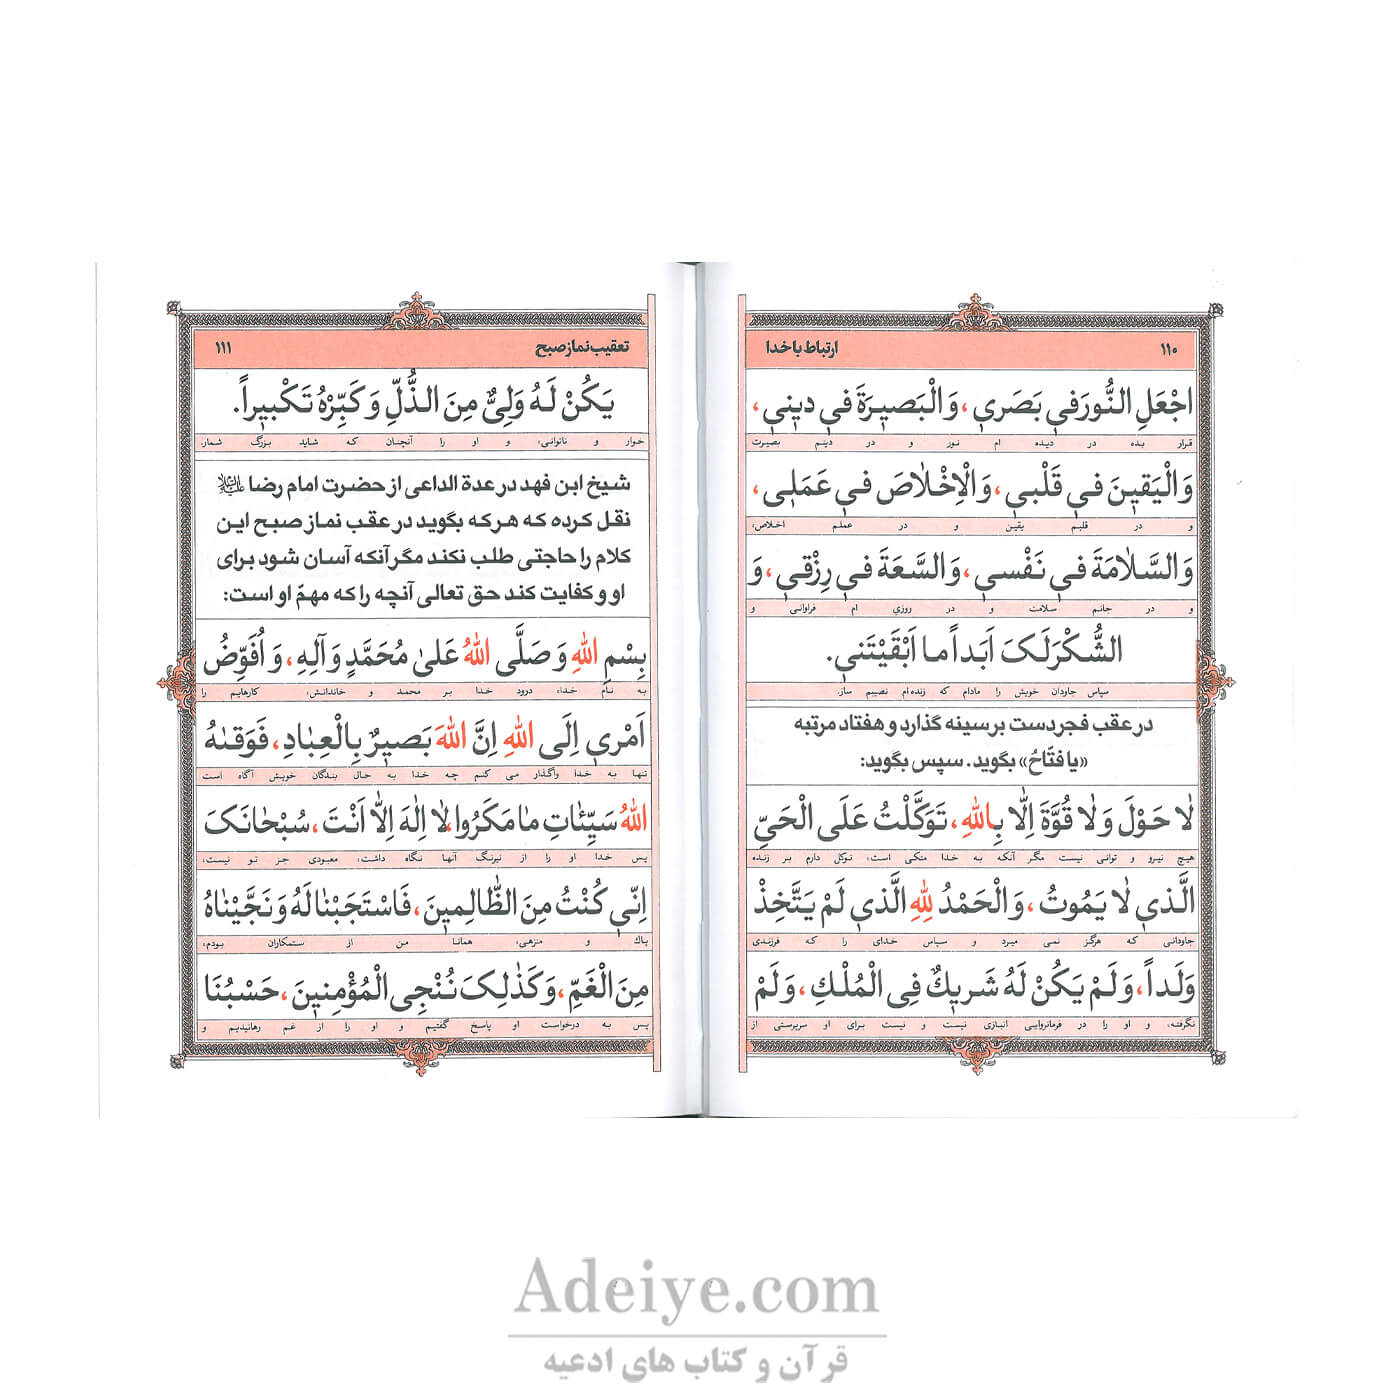 ۱۱۰ ارتباط با خدا
اجْعَلِ النُّورَ فی بَصَری، وَالْبَصیرَةَ فی دینی،
قرار بده در دیده ام نور و در دینم بصیرت
وَالْیَقینَ فی قَلْبی، وَالْاِخْلاٰصَ فی عَمَلی،
و در قلبم یقین و در عملم اخلاص،
وَالسَّلاٰمَةَ فی نَفْسی، وَالسَّعَةَ فی رِزْقی، وَ
و در جانم سلامت و در روزی ام فراوانی و
الشُّکْرَ لَکَ اَبَداً ما اَبْقَیْتَنی.
سپاس جاودان خویش را مادام که زنده ام نصیبم ساز.
در عقب فجر دست بر سینه گذارد و هفتاد مرتبه
«یا فَتّاحُ» بگوید. سپس بگوید:
لاٰ حَوْلَ وَلاٰ قُوَّةَ اِلّا بِاللهِ، تَوَکَّلْتُ عَلَی الْحَیِّ
هیچ نیرو و توانی نیست مگر آنکه به خدا متکی است، توکل دارم بر زنده
الَّذی لاٰ یَمُوتُ، وَالْحَمْدُ لِلّٰهِ الَّذی لَمْ یَتَّخِذْ
جاودانی که هرگز نمی میرد و سپاس خدای را که فرزندی
وَلَداً، وَلَمْ یَکُنْ لَهُ شَریکٌ فِی الْمُلْکِ، وَلَمْ
نگرفته، و او را در فرمانروایی انبازی نیست و نیست برای او سرپرستی از
تعقیب نماز صبح ۱۱۱
یَکُنْ لَهُ وَلِیٌّ مِنَ الذُّلِّ وَ کَبِّرْهُ تَکْبیراً.
خوار و ناتوانی، و او را آنچنان که شاید بزرگ شمار.
شیخ ابن فهد در عدة الداعی از حضرت امام رضا علیه‌السلام
نقل کرده که هر که بگوید در عقب نماز صبح این
کلام را حاجتی طلب نکند مگر آنکه آسان شود برای
او و کفایت کند حق تعالی آنچه را که مهمّ او است:
بِسْمِ اللهِ وَ صَلَّی اللهُ عَلیٰ مُحَمَّدٍ وَ آلِهِ، وَ اُفَوِّضُ
به نام خدا، درود خدا بر محمد و خاندانش، کارهایم را
اَمْری اِلَی اللهِ اِنَّ اللهَ بَصیرٌ بِالْعِبٰادِ، فَوَقٰهُ
تنها به خدا واگذار می کنم چه خدا به حال بندگان خویش آگاه است
اللهُ سَیِّئٰاتِ مٰا مَکَرُوا، لاٰ اِلٰهَ اِلاّٰ اَنْتَ، سُبْحٰانَکَ
پس خدا او را از نیرنگ آنها نگاه داشت، معبودی جز تو نیست،
اِنّی کُنْتُ مِنَ الظّٰالِمینَ، فَاسْتَجَبْنٰا لَهُ وَ نَجَّیْنٰاهُ
پاک و منزهی، همانا من از ستمکاران بودم،
مِنَ الْغَمِّ، وَ کَذٰلِکَ نُنْجِی الْمُؤْمِنینَ، حَسْبُنَا
پس به درخواست او پاسخ گفتیم و او را از غم رهانیدیم و
Adeiye.com
قرآن و کتاب های ادعیه